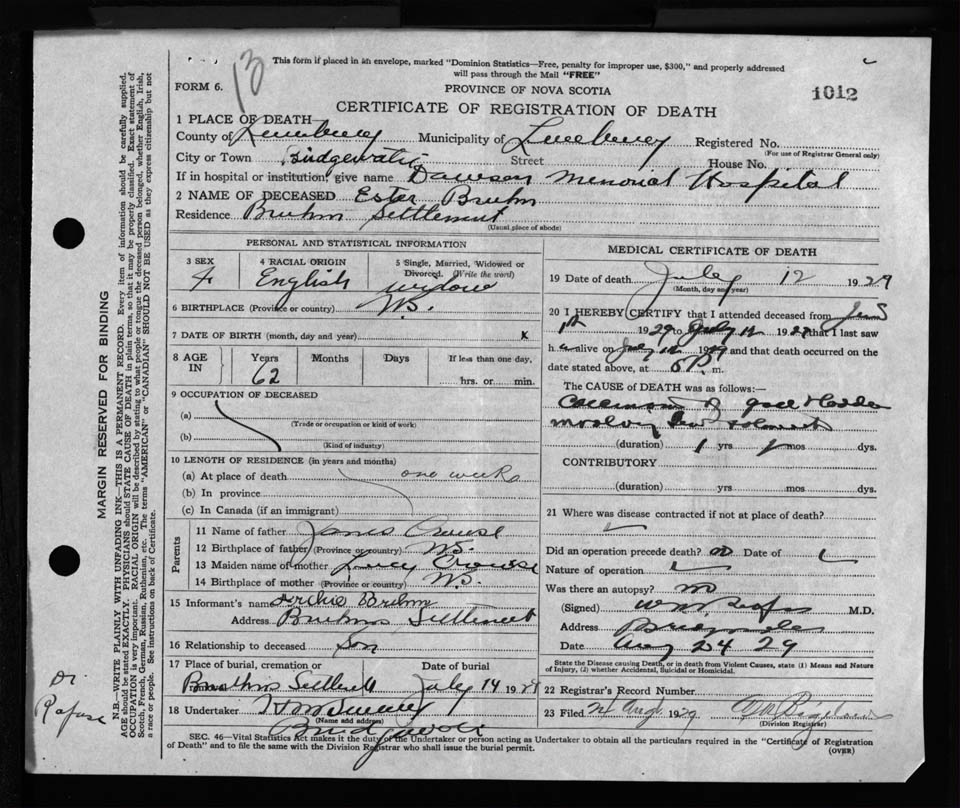 This form if placed in an envelope, marked "Dominion Statistics—Free, penalty for improper use, $300," and properly addressed
will pass through the Mail "FREE"
13
FORM 6.
PROVINCE OF NOVA SCOTIA
1012
CERTIFICATE OF REGISTRATION OF DEATH
1 PLACE OF DEATH—
County of Lunenburg Municipality of Lunenburg Registered No.
(For use of Registrar General only)
City or Town Bridgewater Street House No.
If in hospital or institution, give name Dawson Memorial Hospital
2 NAME OF DECEASED Ester Bruhm
Residence Bruhm Settlement
(Usual place of abode)
PERSONAL AND STATISTICAL INFORMATION
3 SEX 4 RACIAL ORIGIN 5 Single, Married, Widowed or
Divorced. (Write the word)
F English Widow
6 BIRTHPLACE (Province or country) N.S.
7 DATE OF BIRTH (month, day and year) x
8 AGE IN Years Months Days If less than one day,
62 hrs. or min.
9 OCCUPATION OF DECEASED
(a)
(Trade or occupation or kind of work)
(b)
(Kind of industry)
10 LENGTH OF RESIDENCE (in years and months)
(a) At place of death one week
(b) In province
(c) In Canada (if an immigrant)
Parents
11 Name of father James Crouse
12 Birthplace of father (Province or country) N.S.
13 Maiden name of mother Lucy Crouse
14 Birthplace of mother (Province or country) N.S.
15 Informant's name Archie Bruhm
Address Bruhms Settlement
16 Relationship to deceased Son
17 Place of burial, cremation or Date of burial
Bruhms July 14 1929
18 Undertaker
(Name and address)
MEDICAL CERTIFICATE OF DEATH
19 Date of death July 12 1929
(Month, day and year)
20 I HEREBY CERTIFY that I attended deceased from
1929 to July 12 1929 that I last saw
h alive on July 12 1929 and that death occurred on
date stated above, at 5 P. m.
The CAUSE OF DEATH was as follows:—
of gall bladder
(duration) 1 yrs mos dys.
CONTRIBUTORY
(duration) yrs mos dys.
21 Where was disease contracted if not at place of death?
Did an operation precede death? no Date of
Nature of operation
Was there an autopsy? no
(Signed) M.D.
Address
Date Aug 24 29
State the Disease causing Death, or in death from Violent Causes, state (1) Means and Nature
of Injury, (2) whether Accidental, Suicidal or Homicidal.
22 Registrar's Record Number
23 Filed 24 Aug 1929
(Division Registrar)
SEC. 46—Vital Statistics Act makes it the duty of the Undertaker or person acting as Undertaker to obtain all the particulars required in the "Certificate of Registration
of Death" and to file the same with the Division Registrar who shall issue the burial permit.
(OVER)
MARGIN RESERVED FOR BINDING
N.B.—WRITE PLAINLY WITH UNFADING INK—THIS IS A PERMANENT RECORD. Every item of information should be carefully supplied.
AGE should be stated EXACTLY. PHYSICIANS should STATE CAUSE OF DEATH in plain terms, so that it may be properly classified. Exact statement of
OCCUPATION is very important. RACIAL ORIGIN will be described by stating to what people or tongue the deceased person belonged, whether English, Irish,
Scotch, French, German, Russian, Ruthenian, etc. The terms "AMERICAN" or "CANADIAN" SHOULD NOT BE USED as they express citizenship but not
a race or people. See instructions on back of Certificate.
Dr.
Rafuse